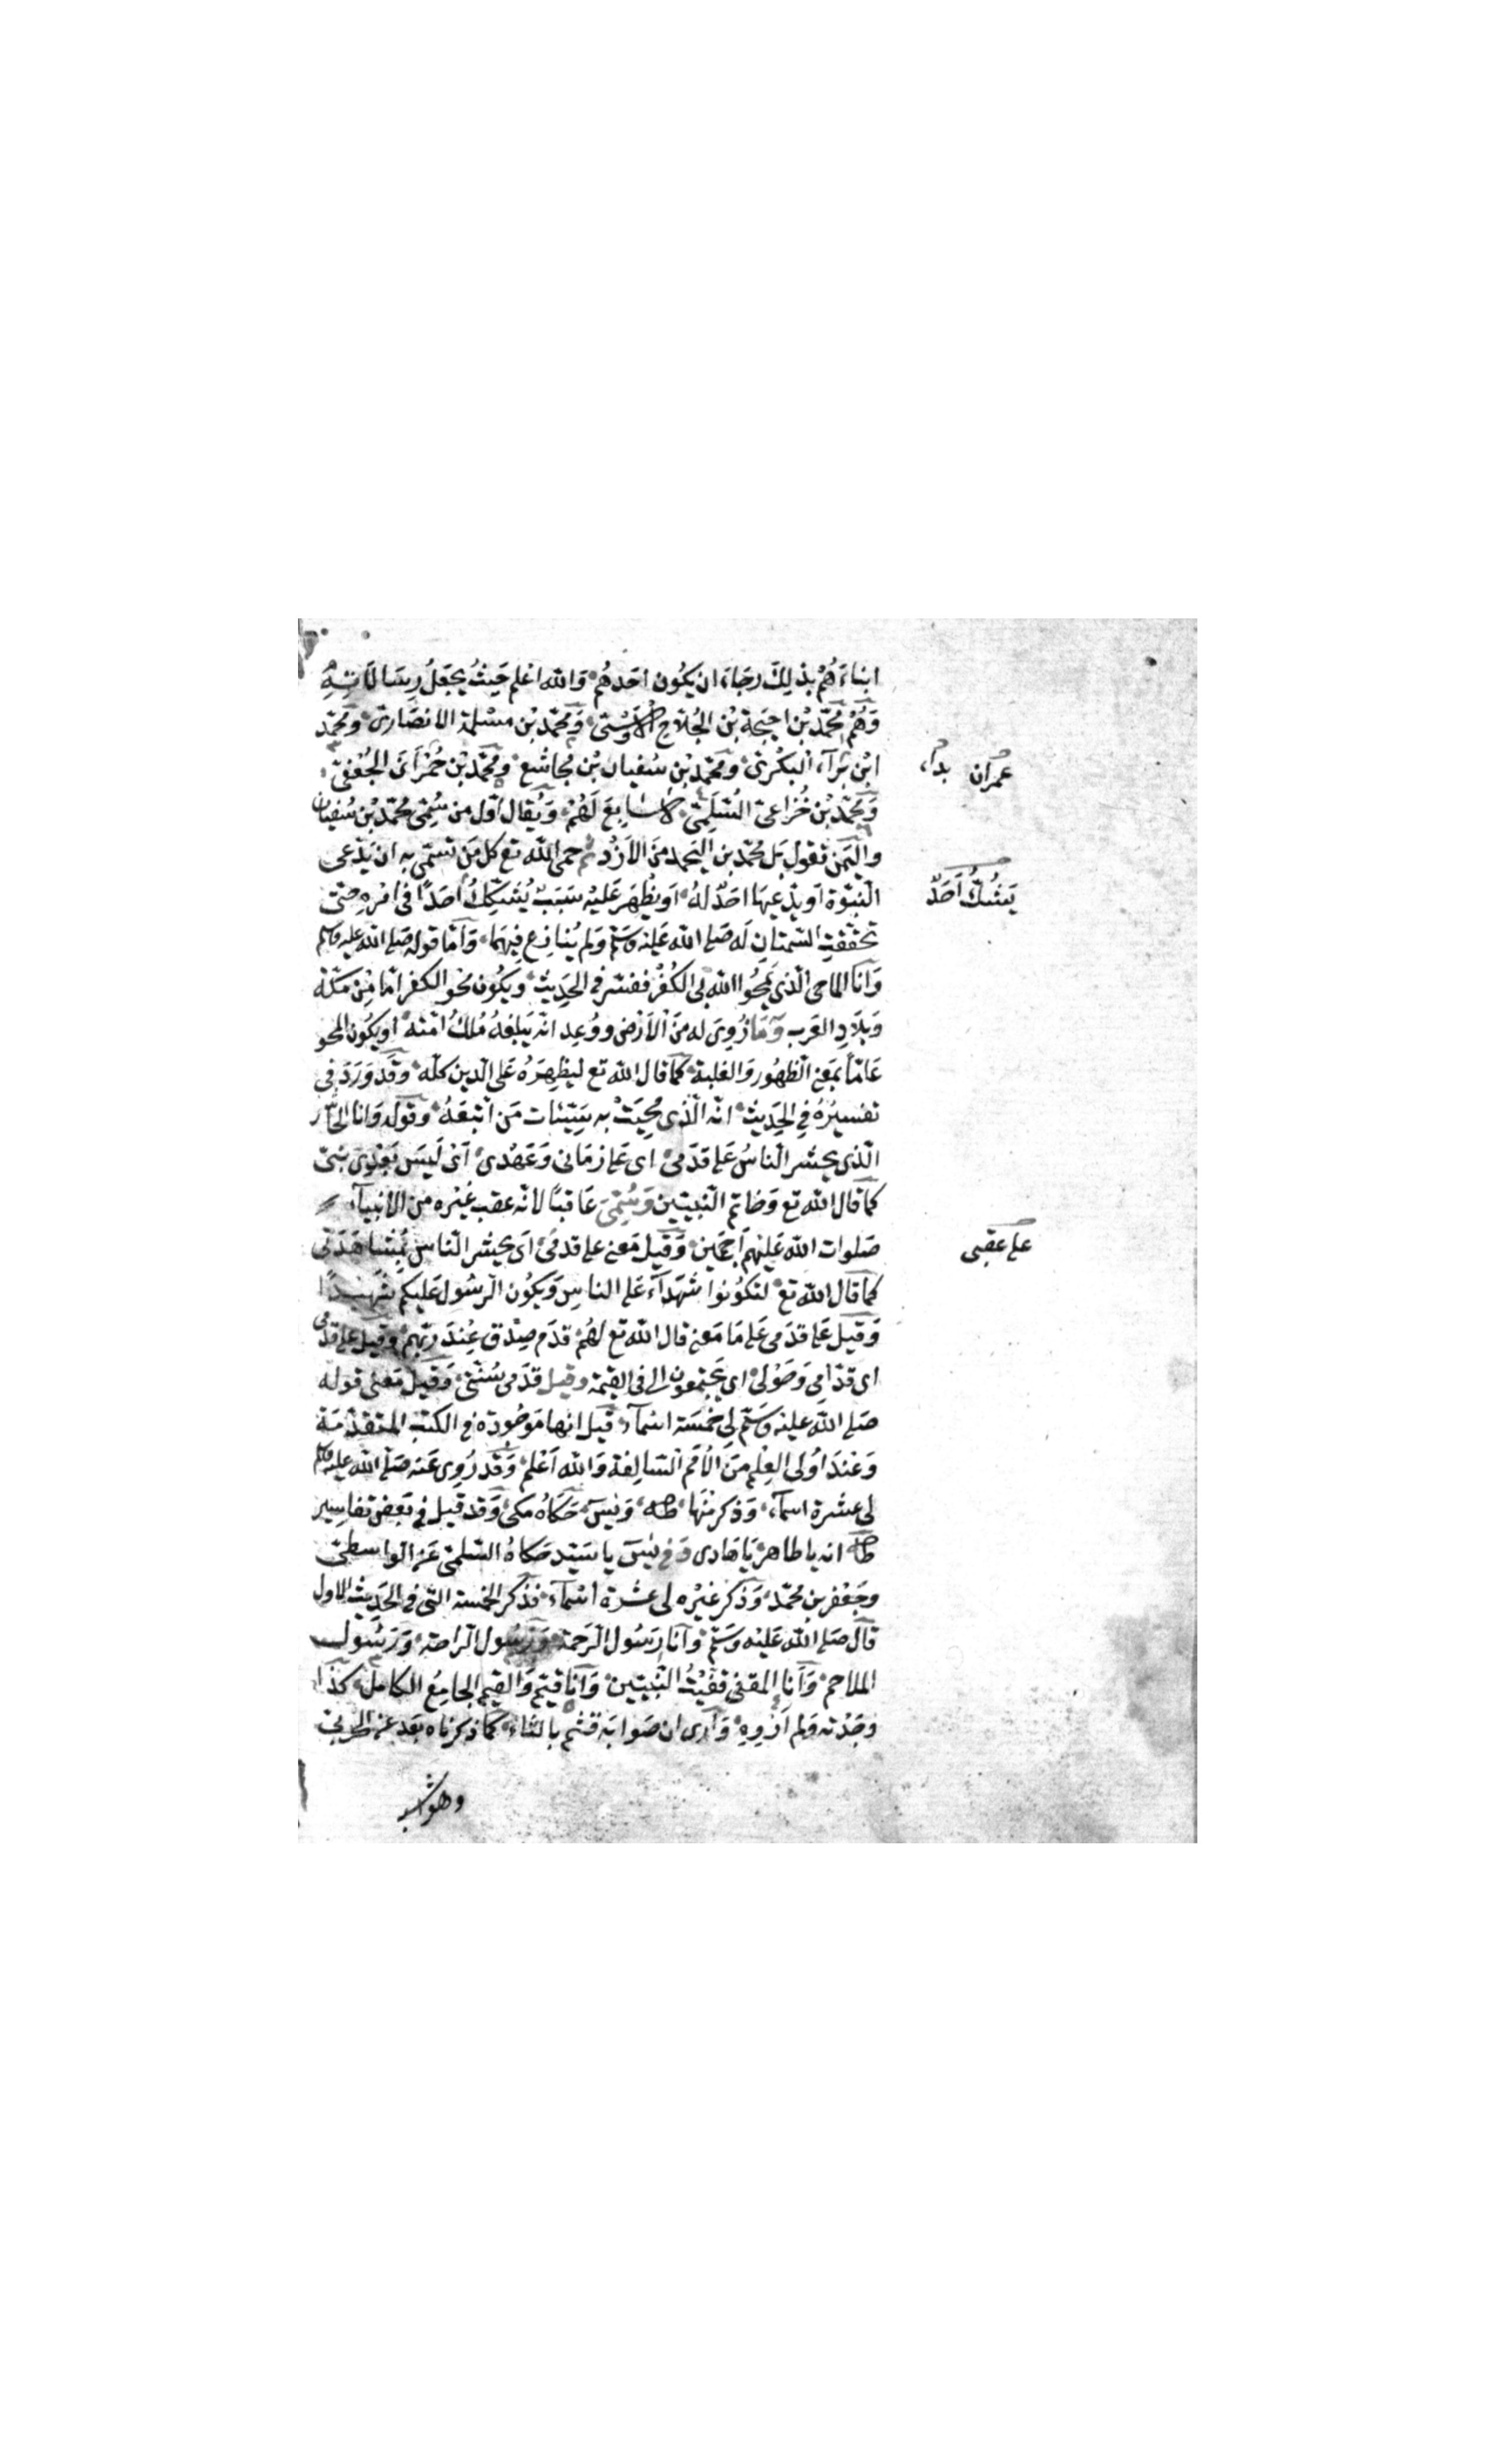 ابناءَهُمْ بذلِكَ رجَاءَ ان يَكُون احَدهُم وَالله اعْلم حَيْثُ يجعَلُ رِسَالَاتِهِ
وَهُمْ مُحمّد بْن احَيحَة بْن الجُلَاح الاوْسىّ وَمحمّد بْن مسْلمة الانصَارىّ ومحَمّد
ابْن بَرَآءِ البكْرىّ ومحَمّد بْن سُفيان بْن مُجاشع ومحَمّد بْن حُمْرَان الجُعْفىّ
وَمحَمّد بْن خُزاعىّ السُّلَمِىّ لا سَابعَ لَهُمْ وَيُقال اوّل من سُمِّىَ محَمّد بْن سُفيان
واليَمن تقول بَل محَمّد بن اليَحمد منَ الاَزْد ثم حمى الله تع كل مَن تسمّى به ان يَدّعى
النّبُوّة اويدّعِيهَا احَدٌ لهُ اَو يظْهَرَ عَليْه سَبَبٌ يُشكِّكُ احَدًا فى امْرِه حتّى
تحققتِ السّمتان لَه صَلى الله عَليْه وَسَلّم وَلم يُنازِع فِيهمَا وَاَمّا قوله صَلى الله عليه وسلم
وَانا الماحى الّذى يَمحُوا الله بى الكُفْرَ ففسّر فى الحَدِيث ويكُون محْو الكفر امّا مِن مَكّة
وَبلَادِ العَرب وَمَا زُوىَ له منَ الاَرْض ووُعِد انّه يَبلغهُ مُلكُ امّته اويَكُون المحو
عَامّاً بمعنى الظهُور وَالغلبة كمَا قال الله تع ليُظهِرَهُ عَلى الدين كلّه وَقد وَرَدَ فى
تفسيرُهُ فِى الحَدِيث انّه الّذى مُحِيَتْ به سَيِّئات مَن اتبَعَهُ وقوله وَانا الحَاشر
الّذى يحشر النّاسُ عَلى قدَمى اى عَلى زمَانى وَعَهْدى اَىْ لَيسَ بَعْدِى نبىّ
كمَا قال الله تع وَخاتم النّبيّين وَسُمّىَ عَاقبًا لانّه عقب غَيْره من الانبيآءِ
صَلوات الله عَليْهم اَجمَعين وَقيل مَعنى على قدمى اَى يحشر النّاس بُمشاهَدَتى
كمَا قال الله تع لتكُونوا شُهَدآءَ عَلى الناسِ وَيكُون الرّسُول عَليكم شَهيدًا
وَقيل عَلى قدَمى عَلى مَا مَعنى قال الله تع لهُمْ قدَم صِدْق عِنْدَ رَبّهمْ وقيل على قدمى
اى قدّامى وَحَوْلى اى يَجتمعون الى فى القيمة وقيل قدَمى سُنّتى وَقيل معْنى قوله
صَلى الله عليْه وَسَلّم لى خمْسَة اسْمآء قيل انها مَوْجُودة فى الكتب المتقدّمَة
وَعندَ اوُلى العِلْم منَ الاُمَم السّالفة وَالله اَعْلم وَقد رُوِى عَنه صَلى الله عليه وسلم
لى عشْرة اسمآء وَذكر منْهَا طه وَيسَ حَكَاهُ مكى وَقد قيل فى بَعض تفاسِير
طه انه ياطاهر يَا هَادى وَفى يسَ ياسَيّد حَكاهُ السّلمىّ عَن الواسطىّ
وجَعْفر بن محمّد وَذكر غيْره لى عشْرة اسْمآء فذكر الخمسة التى فى الحَدِيث الاول
قال صَلى الله عَليْه وَسَلّم وَانا رَسُول الرّحمَة وَرَسُول الرّاحة وَرَسُول
الملاحم وَانا المقفى قفَّيْتُ النّبيّين وَانا قيّم وَالقيم الجامِعُ الكامل كذا
وجَدْته وَلم اَرْوِهِ وَاَرى ان صَوابَه قثم بالثاءِ كمَا ذكرناه بَعْد عَن الحربىّ
وهواشبه
عمران بداء
يَشُكُّ اَحَدٌ
على عقبى